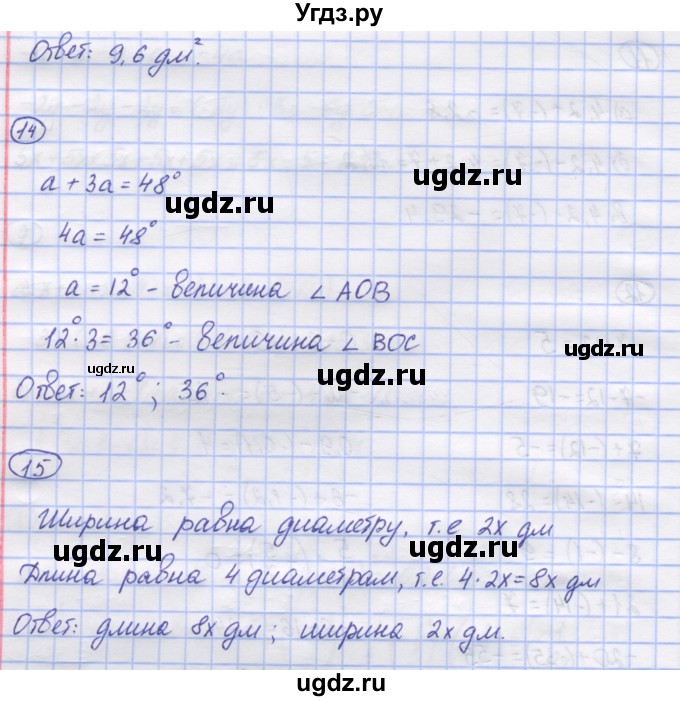 Угдз.ру
Ответ: 9,6 дм².
ugdz.ru
14
ugdz.ru
a + 3a = 48°
ugdz.ru
4a = 48°
a = 12° - величина ∠ AOB
ugdz.ru
12° · 3 = 36° - величина ∠ BOC
ugdz.ru
ugdz.ru
Ответ: 12°; 36°.
15
ugdz.ru
Ширина равна диаметру, т.е. 2x дм
ugdz.ru
ugdz.ru
Длина равна 4 диаметрам, т.е. 4 · 2x = 8x дм
Ответ: длина 8x дм; ширина 2x дм.
ugdz.ru
ugdz.ru